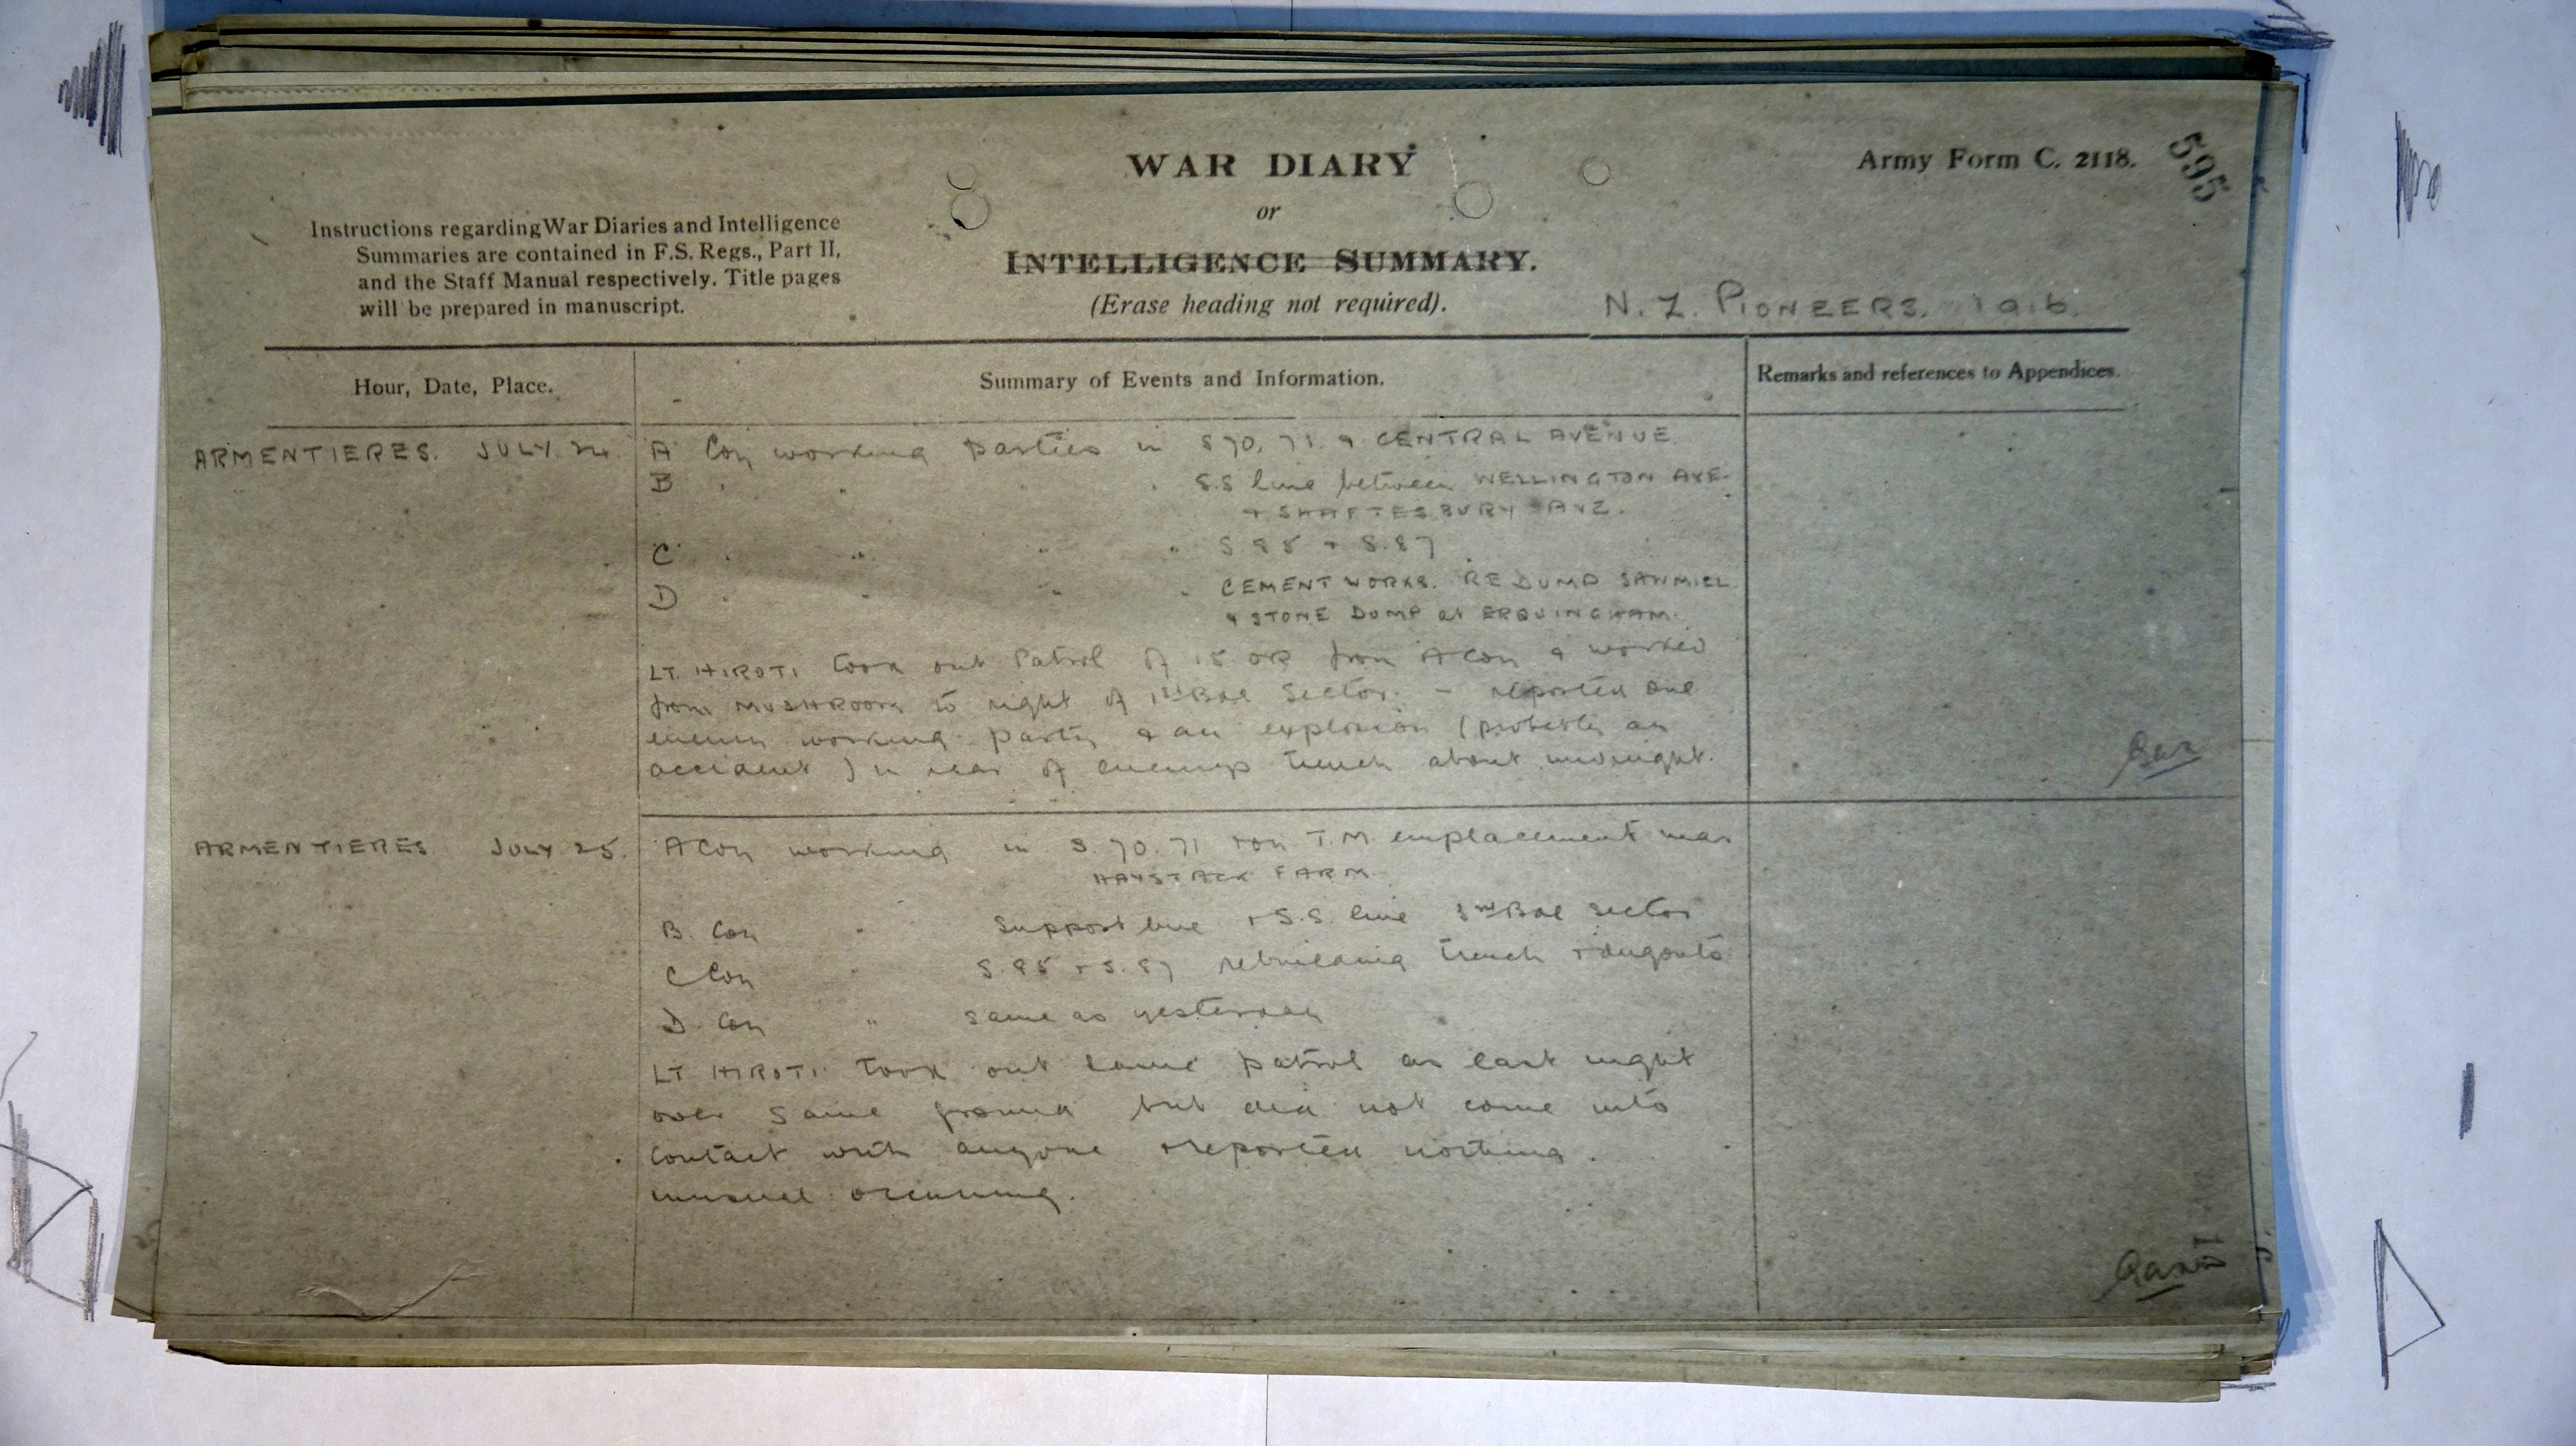 WAR DIARY
or
INTELLIGENCE SUMMARY.
(Erase heading not required).
Army Form C. 2118.
595
Instructions regarding War Diaries and Intelligence
Summaries are contained in F.S. Regs., Part II,
and the Staff Manual respectively. Title pages
will be prepared in manuscript.
N. Z. PIONEERS. 1916.
Hour, Date, Place.
Summary of Events and Information.
Remarks and references to Appendices.
ARMENTIERES. JULY. 24. A Coy working parties in S 70, 71. & CENTRAL AVENUE.
B " " " " S.S line between WELLINGTON AVE
+ SHAFTESBURY AVE.
C " " " " S 85 + S.87
D " " " " CEMENT WORKS. RE DUMP SAWMILL
& STONE DUMP at ERQUINGHAM.
LT. HIROTI took out Patrol of 15 OR from A Coy & worked
from MUSHROOM to right of 1st Bde Sector. - reported one
enemy working party & an explosion (probably an
accident) in rear of enemys trench about midnight.
ARMENTIERES JULY 25. A Coy working in S. 70. 71 + on T.M. emplacement near
HAYSTACK FARM.
B. Coy " Support line + S.S. line 3rd Bde Sector
C Coy " S. 85 + S. 87 rebuilding trench + dugouts
D. Coy " same as yesterday
LT HIROTI took out same patrol as last night
over same ground but did not come into
contact with anyone + reported nothing.
unusual occurring.